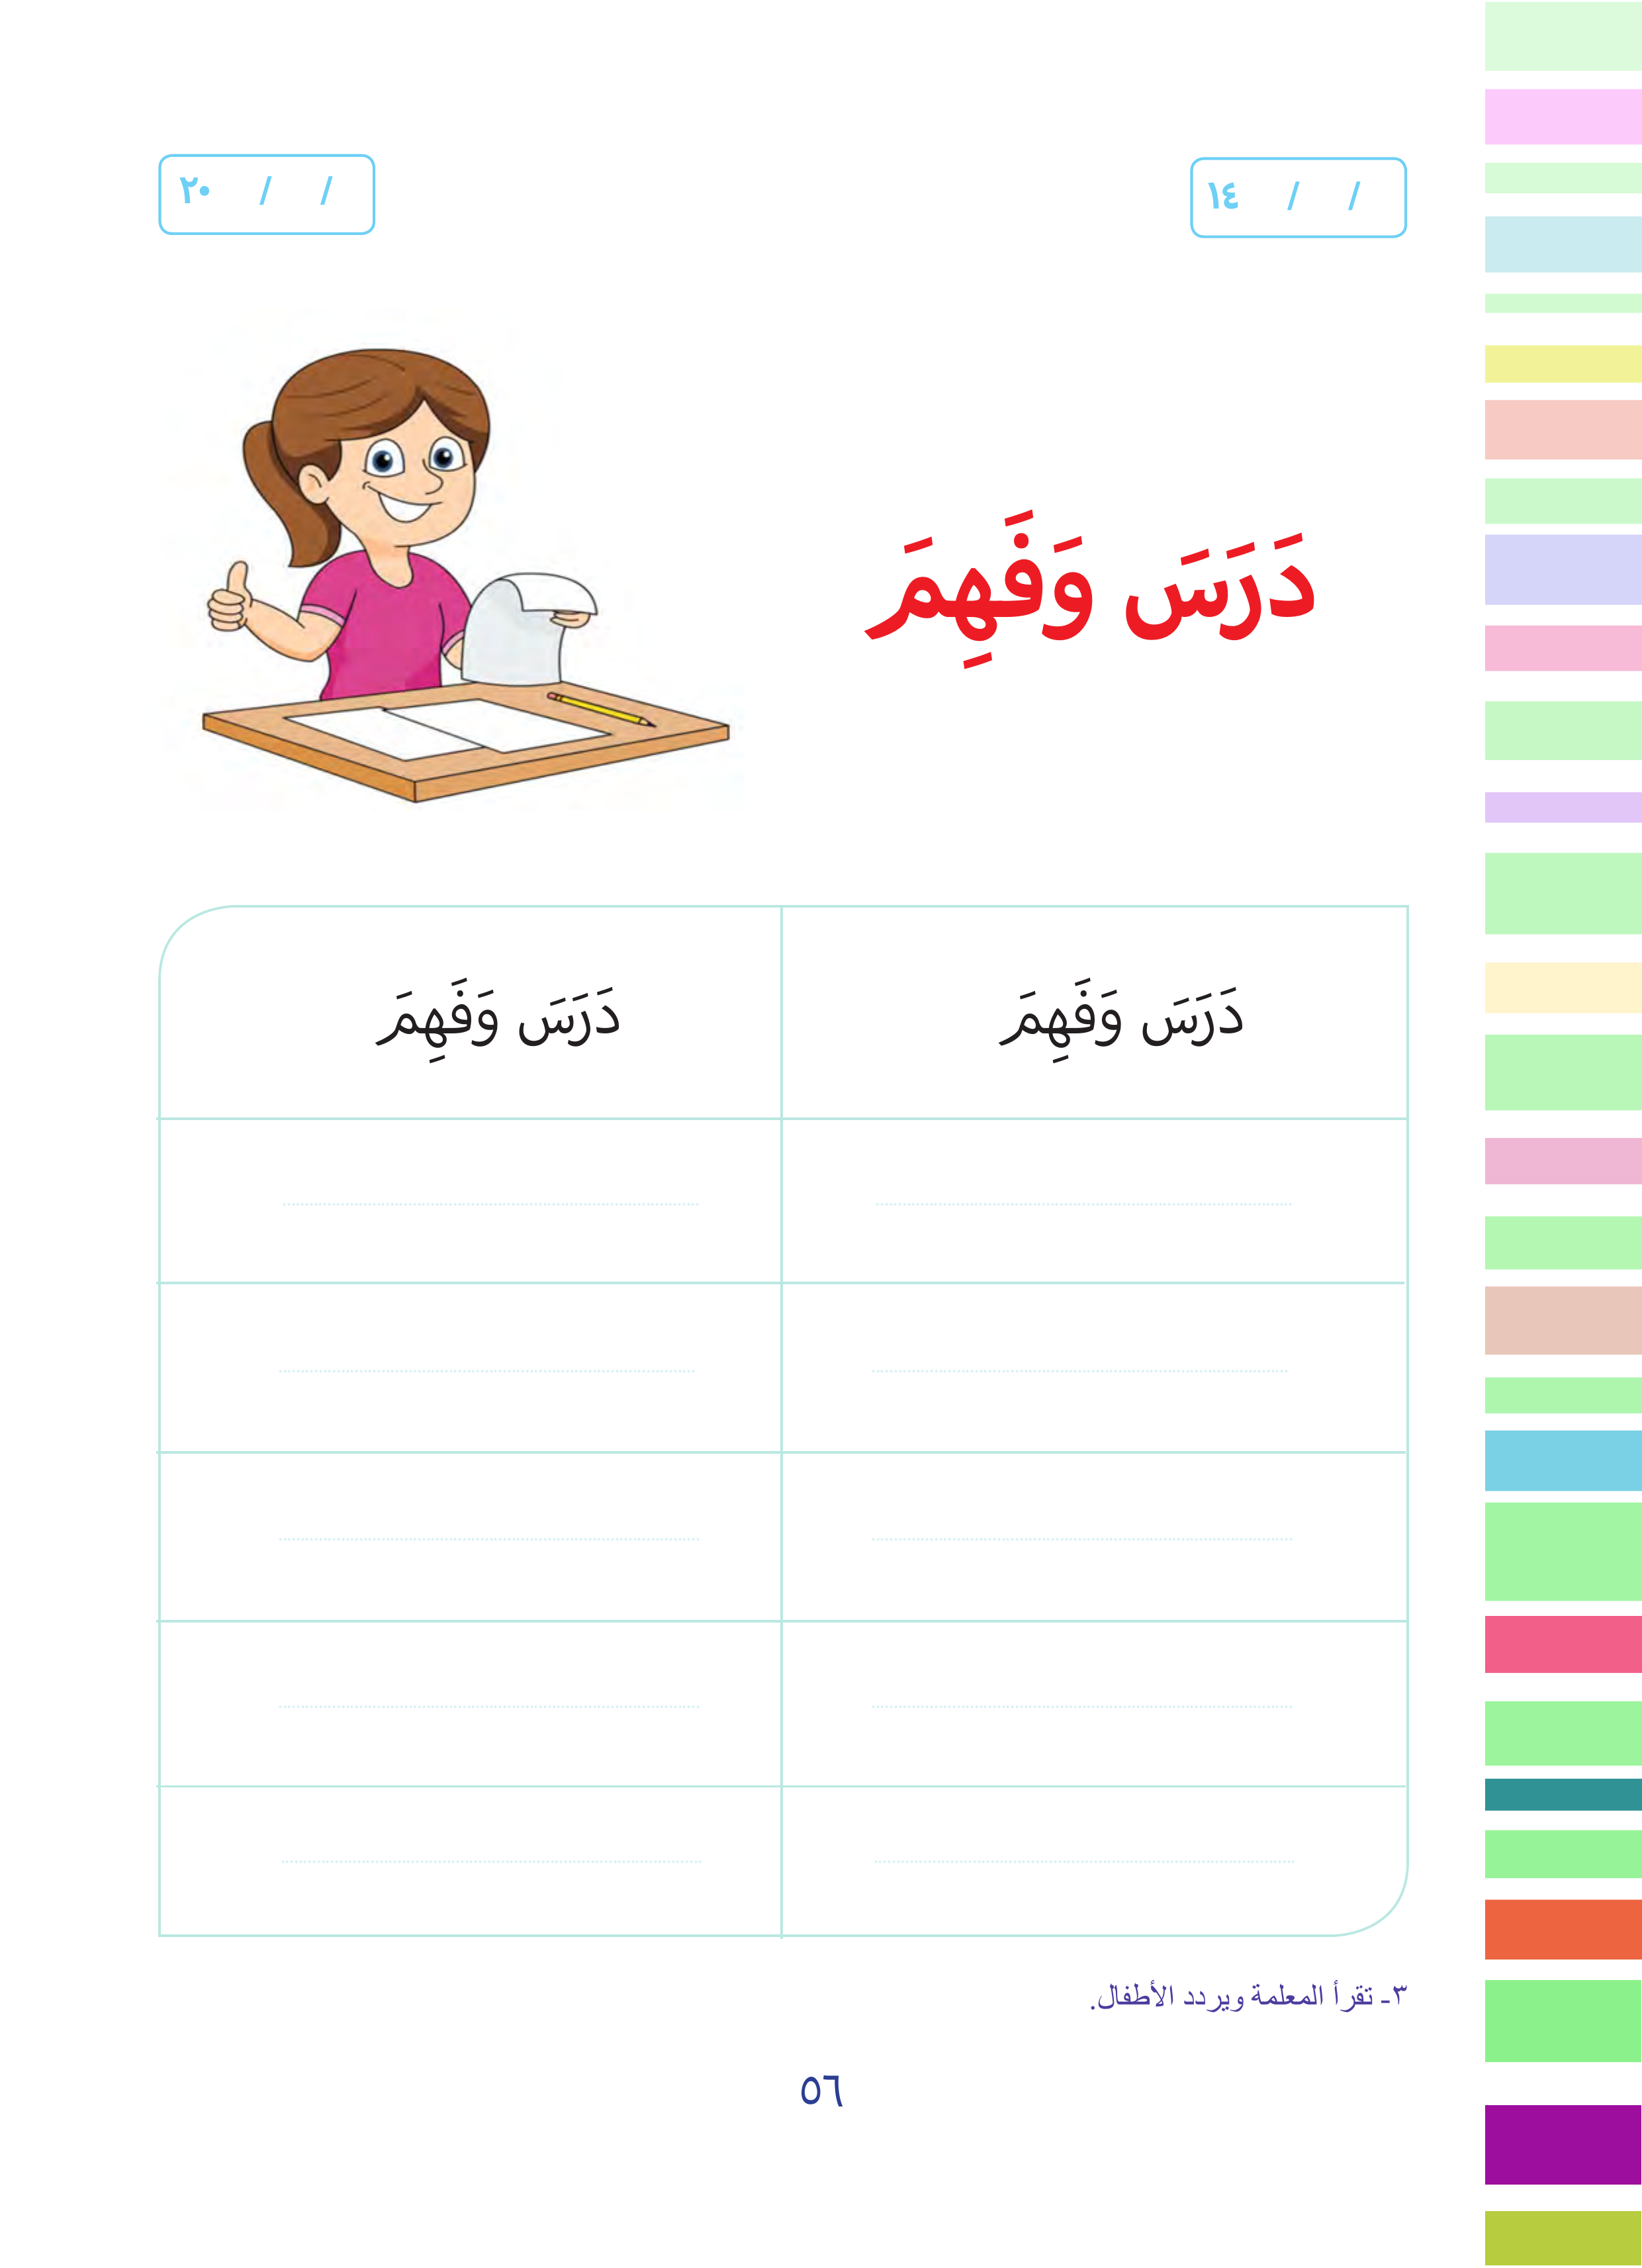 / / ١٤
/ / ٢٠
دَرَسَ وَفَهِمَ
دَرَسَ وَفَهِمَ
دَرَسَ وَفَهِمَ
٣- تقرأ المعلمة ويردد الأطفال.
٥٦